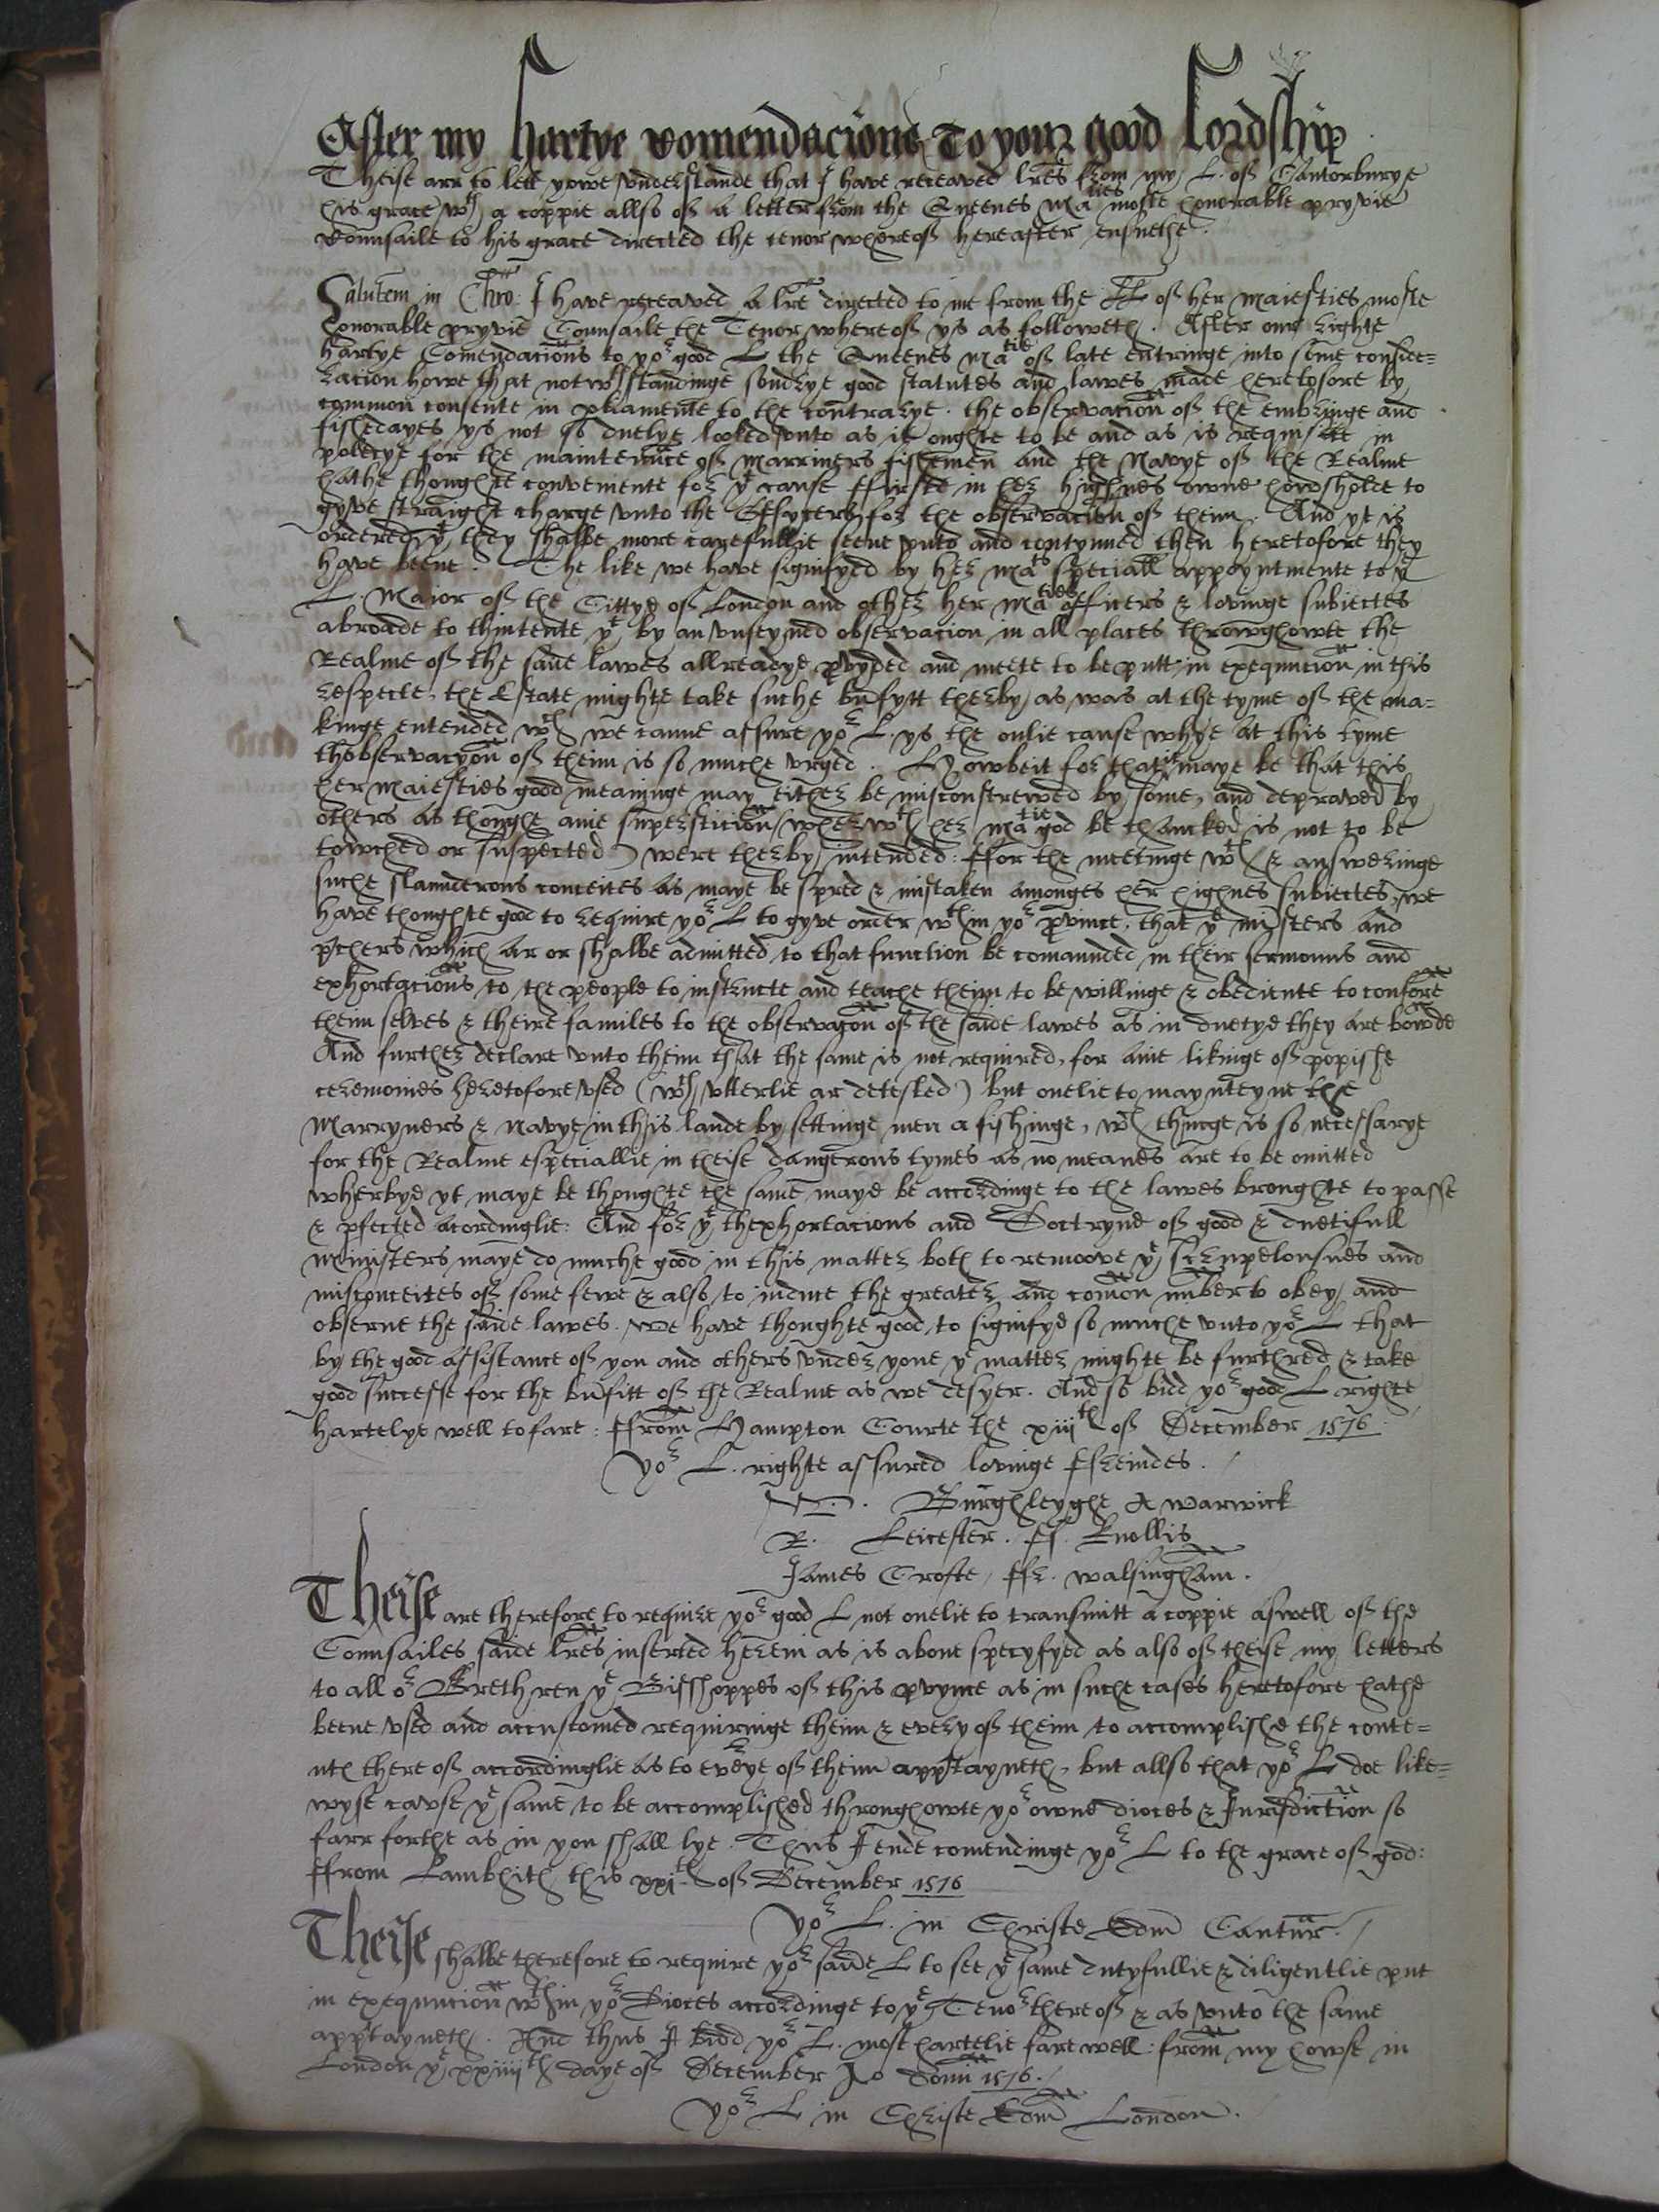 After my hartye comendacions to your good Lordship
Theise are to lett yowe understande that I have receaved lres from my L. of Cantorburye
his grace wth a coppie allso of a letter from the Queenes Maties moste honorable pryvie
Counsaile to his grace directed the tenor whereof hereafter ensuethe.
Salutem in Chro: I have receaved a lre directed to me from the LL of her Maiesties moste
honorable pryvie Counsaile the Tenor whereof ys as followeth. After our righte
hartye Comendacions to yor good L the Queenes Matie of late entringe into some conside=
racion howe that notwthstandinge sondrye good statutes and lawes made heretofore by
common consente in pliamente to the contrarye. the observacion of the embringe and
fishedayes ys not so duelye looked unto as it oughte to be and as is requisite in
policye for the maintenuce of marriners fishemen and the Navye of the Realme
hathe thoughte conveniente for yt cause ffirste in her highnes owne howsholde to
gyve straight charge unto the Offycers for the observacion of theim. And yt is
ordered yt they shalbe more carefullie seene unto and contynued then heretofore they
have beene. The like we have signifyed by her Mats speciall appoyntmente to ye
L. Maior of the Cittye of London and other her Maties officers & lovinge subiectes
abroade to thintente yt by an unfeyned observacion in all places throwghowte the
Realme of the saide lawes allreadye pvyded and meete to be putt in exequucion in this
respecte, the Estate mighte take suche bnfytt therby as was at the tyme of the ma=
kinge entended wch we canne assure yor L. ys the onlie cause whye at this tyme
thobservacyon of theim is so muche urged. Howbeit for that it maye be that this
her Maiesties good meaninge may either be misconstrewed by some, and depraved by
others as thoughe anie superstition (wherwth her Matie god be thancked is not to be
towched or suspected) were therby intended: ffor the meetinge wth & answeringe
suche slaunderous conceites as maye be spred & mistaken amonges her highnes subiectes, we
have thoughte good to require yor L to gyve order wthin yor pvince, that ye misters and
pchers which ar or shalbe admitted to that function be comaunded in their sermouns and
exhortacions to the people to instructe and teache theim to be willinge & obediente to confore
theim selves & theire familes to the observacon of the saide lawes as in duetye they are bownde
And further declare unto theim that the same is not required, for anie likinge of popishe
ceremonies heretofore used (wch utterlie ar detested) but onelie to maynteyne the
Marryners & navye in this lande by settinge men a fishinge, wch thinge is so necessarye
for the Realme especiallie in theise dangerous tymes as no meanes are to be omitted
wherbye yt maye be thoughte the same maye be accordinge to the lawes broughte to passe
& pfected acordinglie: And for yt thexhortacions and Doctryne of good & duetifull
Ministers maye do muche good in this matter both to remoove ye scrupelousnes and
misconceites of some fewe & also to induce the greater and comon nuber to obey and
observe the saide lawes. We have thoughte good to signifye so muche unto yor L that
by the good assistance of you and others under youe ye matter mighte be furthred & take
good successe for the bnfitt of the Realme as we desyer. And so bidd yor good L righte
hartelye well to fare: ffrom Hampton Courte the xiijth of December 1576.
Yor L. righte assured lovinge ffreindes.
W. Burghleyghe A Warwick
R. Leicester. ff. Knollis
James Crofte, ffr. Walsingham.
Theise are therefore to require yor good L not onelie to transmitt a coppie aswell of the
Counsailes saide lres inserted herein as is above specyfyed as also of theise my letters
to all or Brethren ye Bisshoppes of this pvynce as in suche cases heretofore hathe
beene used and accustomed requiringe theim & every of theim to accomplishe the conte=
nts there of accordinglie as to everye of theim apptayneth, but allso that yor L doe like=
wyse cawse ye same to be accomplished throughowte yor owne dioces & Jurisdiction so
farr forthe as in you shall lye. Thus I ende comendinge yor L to the grace of god:
ffrom Lambhith this xxjth of December 1576
Yor L. in Christe Edm Cantur.
Theise shalbe therefore to require yor saide L to see ye same dutyfullie & diligentlie put
in exequucion wthin yor Dioces accordinge to ye Tenor thereof & as unto the same
apptayneth. And thus I bidd yor L. most hartelie fare well: from my howse in
London ye xxiiijth daye of December Ao Domi 1576.
Yor L in Christe Edm London.